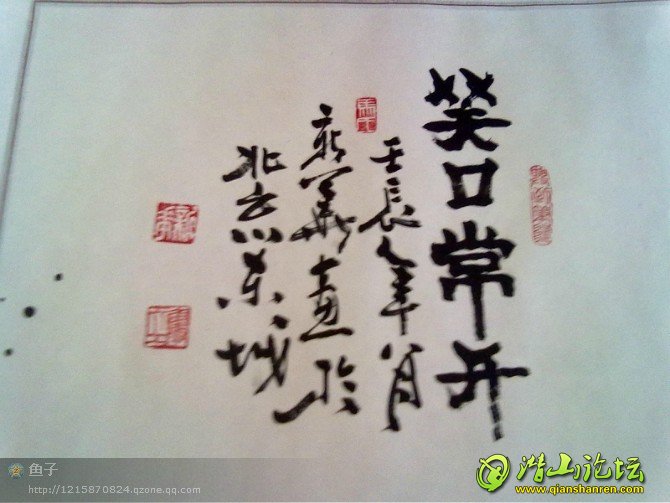 笑口常开
壬辰年八月
新义画於
北京东城
鱼子
http://1215870824.qzone.qq.com
潜山论坛
www.qianshanren.com